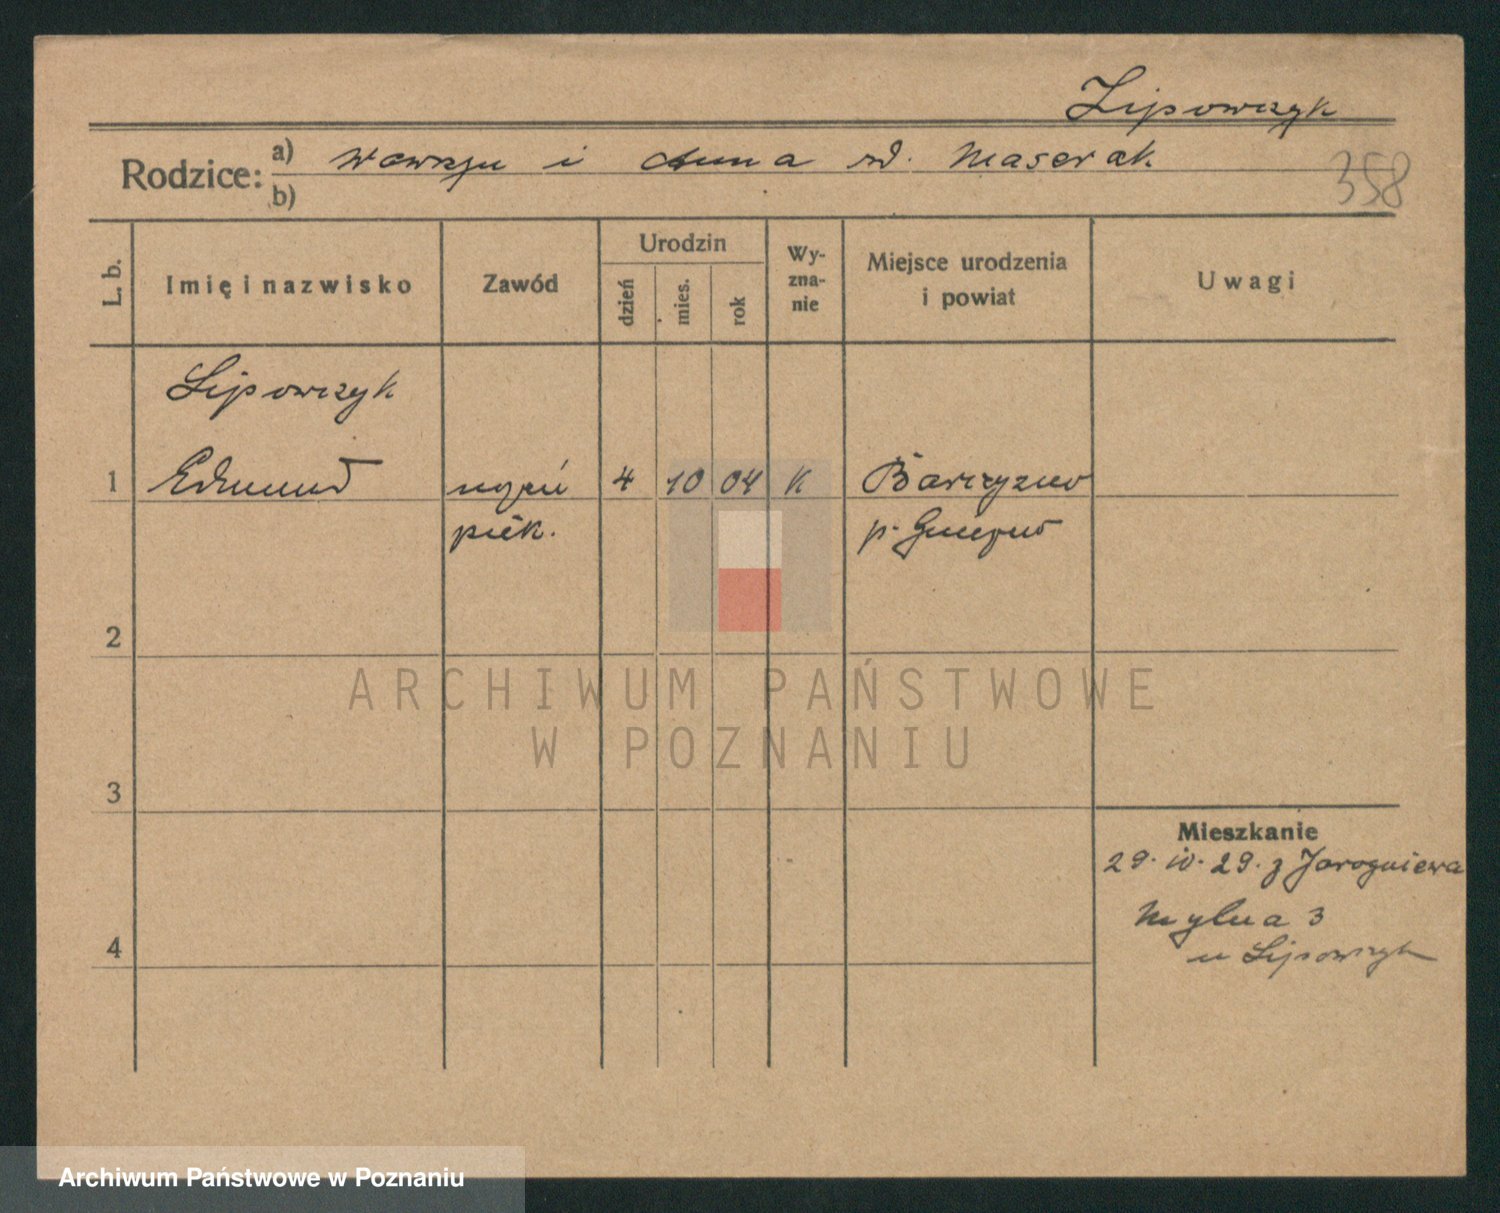 Lipowczyk
Rodzice: a) Wawrzyn i Anna rd. Maserak
b)
358
L. b.
Imię i nazwisko
Zawód
Urodzin
dzień
mies.
rok
Wy-
zna-
nie
Miejsce urodzenia
i powiat
Uwagi
Lipowczyk
1 Edmund
uczeń 4 10 04 K
piek.
p. Gniezno
2
3
4
Mieszkanie
29. IV. 29. z Jarogniewa
Mylna 3
u Lipowczyk
ARCHIWUM PAŃSTWOWE
W POZNANIU
Archiwum Państwowe w Poznaniu